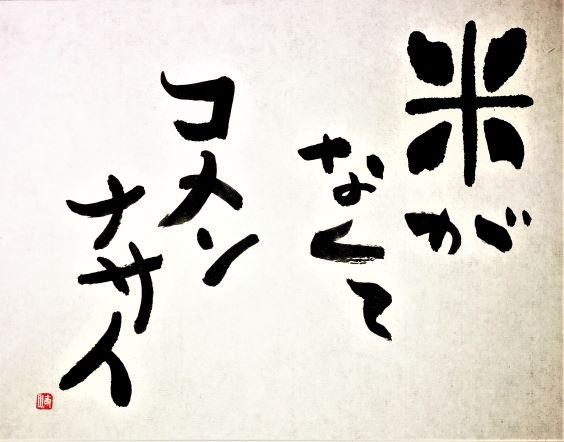 米が
なくて
コメン
ナサイ